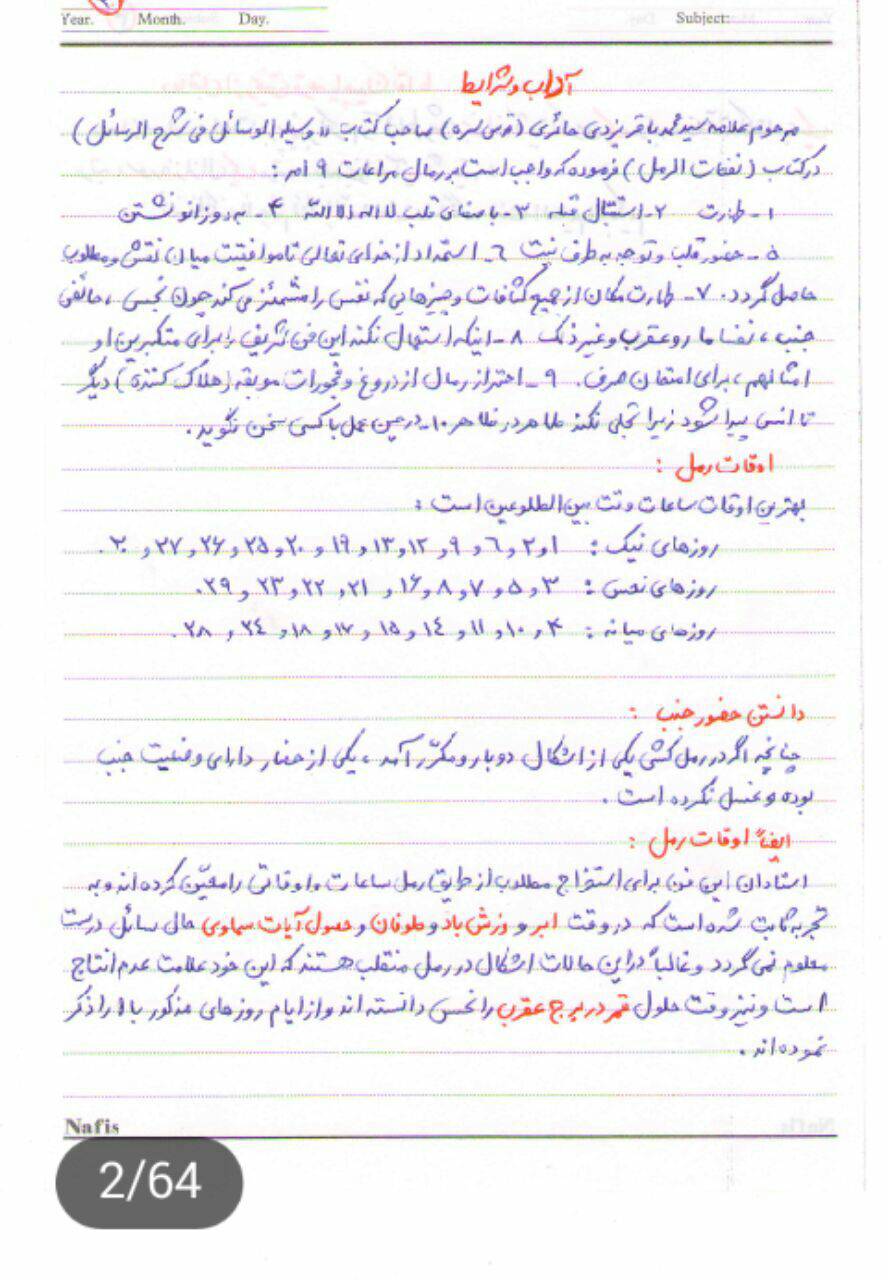 Year. Month. Day. Subject:
آداب و شرایط
مرحوم علامه سید محمد باقر یزدی حائری (قدس سره) صاحب کتاب (( وسیله الوسائل فی شرح الرسائل )
در کتاب (نفحات الرمل) فرموده که واجب است بر رمال مراعات ۹ امر :
۱- طهارت ۲- استقبال قبله ۳- با صفای قلب لا اله الا الله ۴- به دوزانو نشستن
۵- حضور قلب و توجه به طرف نیت ۶- استمداد از خدای تعالی تا موافقیت میان نقش و مطلوب
حاصل گردد. ۷- طهارت مکان از جمیع کثافات و چیزهایی که نفس را مشمئز می کند چون نجس ، حائض
جنب ، نفسا مار و عقرب و غیر ذلک ۸- اینکه استعمال نکند این فن شریف را برای متکبرین و
امثالهم ، برای امتحان صرف. ۹- احتراز رمال از دروغ و فجورات موبقه (هلاک کننده) دیگر
تا انس پیدا شود زیرا تجلی نکند طاهر در طاهر ۱۰- در عین عمل با کسی سخن نگوید.
اوقات رمل :
بهترین اوقات ساعات وقت بین الطلوعین است :
روزهای نیک : ۱و۲ و ۶ و ۹ و ۱۲و۱۳ و ۱۹ و ۲۰ و ۲۵ و ۲۶ و ۲۷ و ۳۰.
روزهای نحس : ۳ و ۵ و ۷ و ۸ و ۱۶ و ۲۱ و ۲۲ و ۲۳ و ۲۹.
روزهای میانه : ۴ و ۱۰ و ۱۱ و ۱۴ و ۱۵ و ۱۷ و ۱۸ و ۲۴ و ۲۸.
دانستن حضور جنب :
چنانچه اگر در رمل کشی یکی از اشکال دوبار و مکرّر آمد ، یکی از حضار دارای وضعیت جنب
بوده و غسل نکرده است .
ایضاً اوقات رمل :
استادان این فن برای استخراج مطلوب از طریق رمل ساعات و اوقاتی را معیّن کرده اند و به
تجربه ثابت شده است که در وقت ابر و وزش باد و طوفان و حصول آیات سماوی حال سائل درست
معلوم نمی گردد و غالباً در این حالات اشکال در رمل منقلب هستند که این خود علامت عدم انتاج
است و نیز وقت حلول قمر در برج عقرب را نحس دانسته اند و از ایام روزهای مذکور بالا را ذکر
نموده اند .
Nafis
2/64